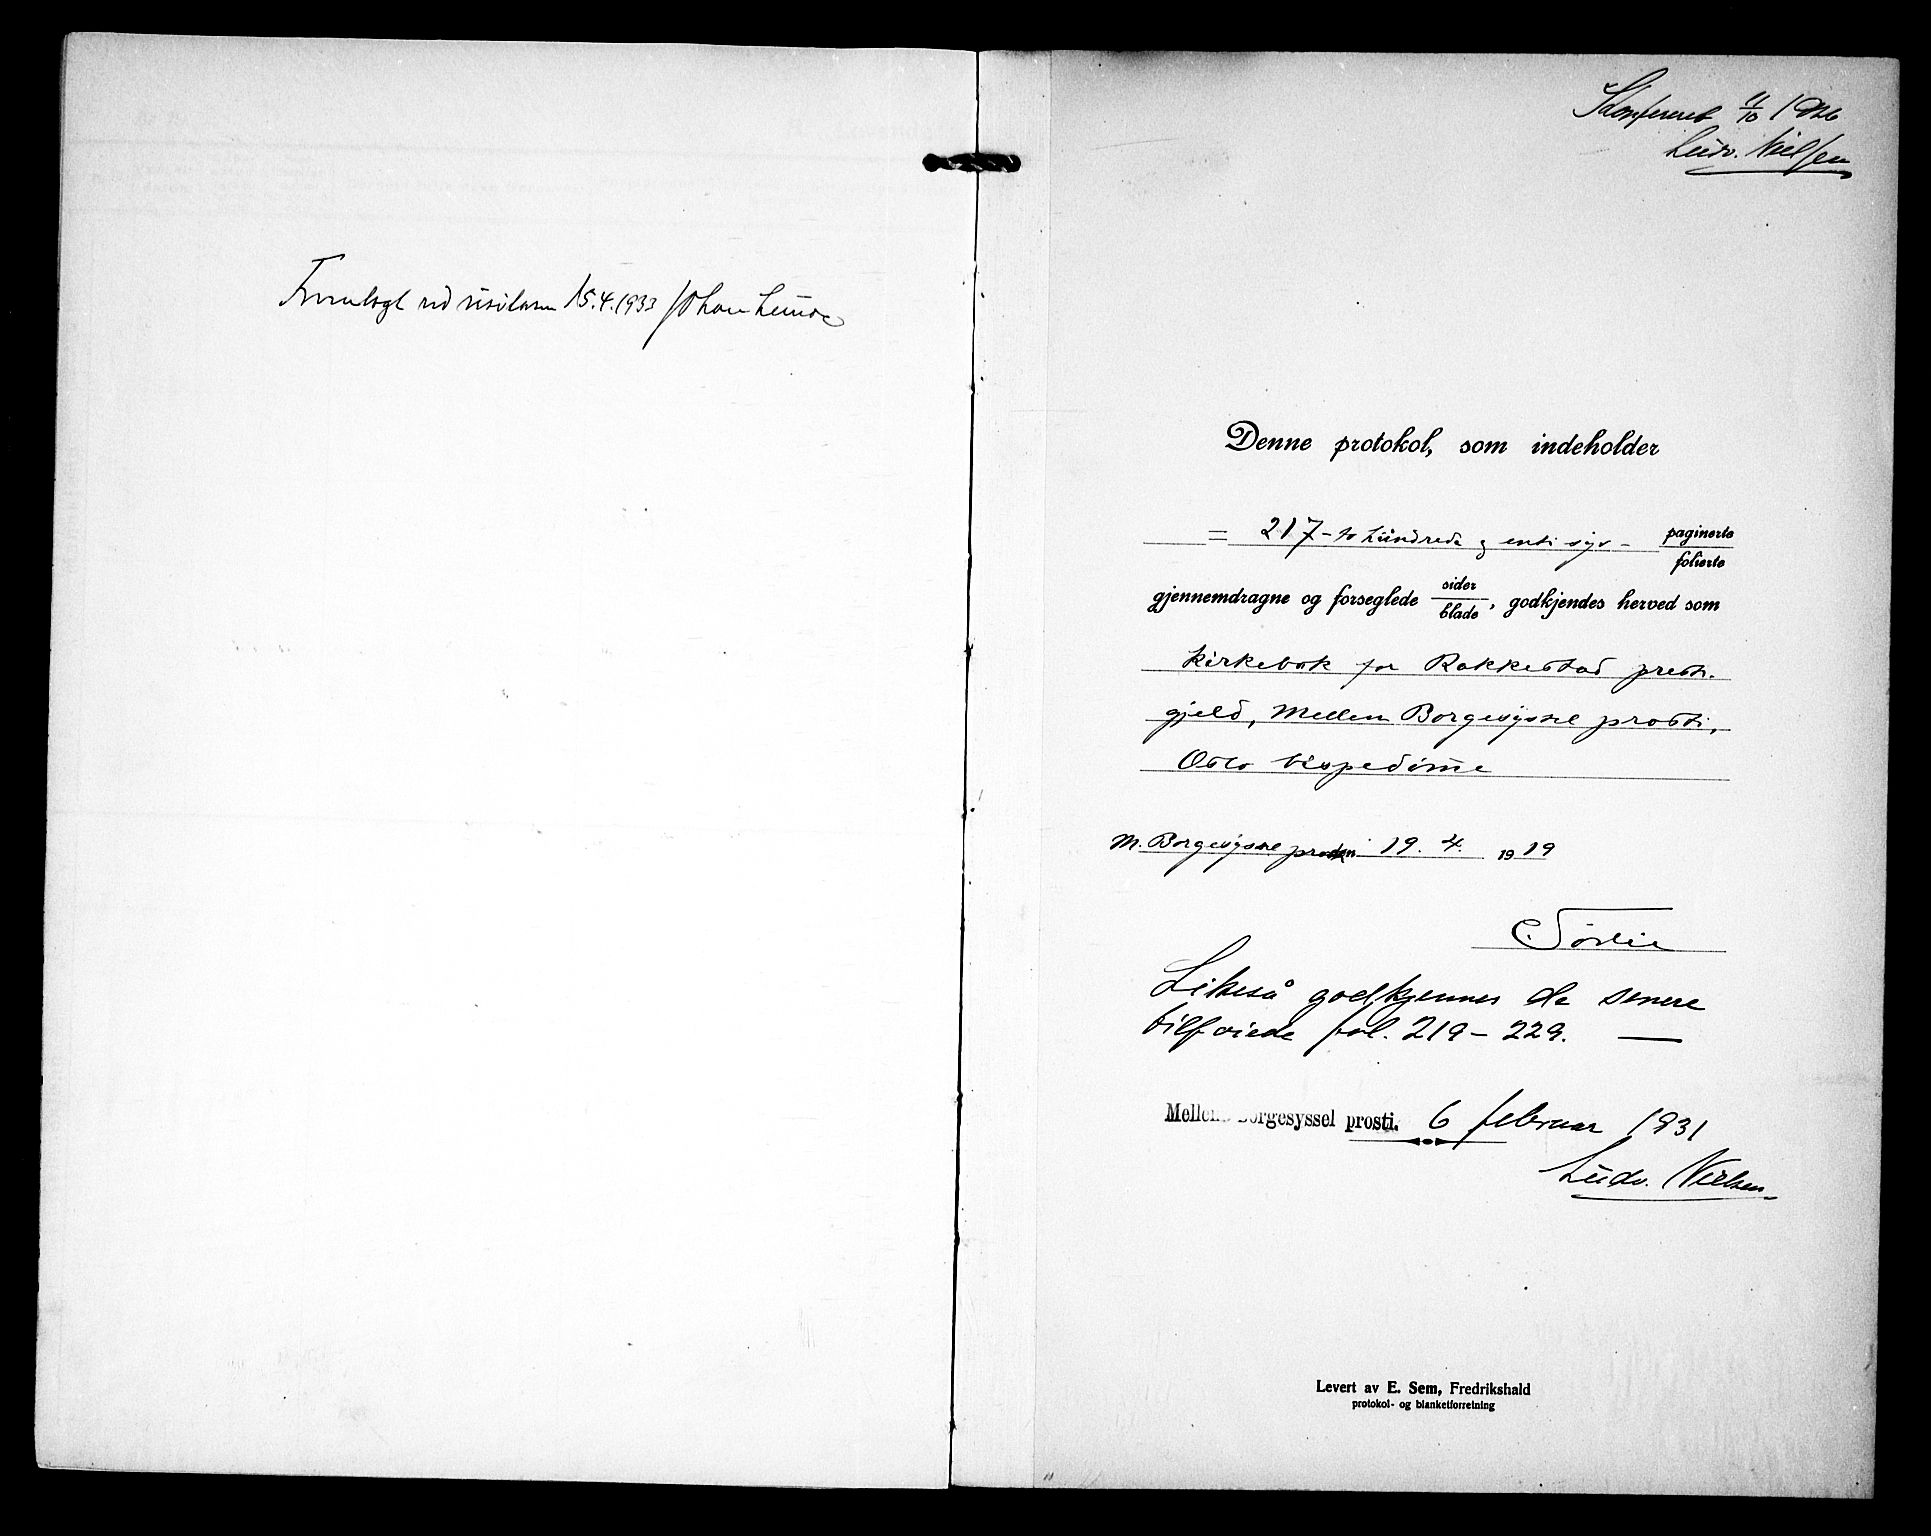 Fremlagt ved visitasen 15.4.1933 Johan Lunde
Konfereret 11/10 1926
Ludv. Nielsen
Denne protokol, som indeholder
= 217 - to hundrede og - syv - paginerte
folierte
gjennemdragne og forseglede sider/blade, godkjendes herved som
kirkebok for Rakkestad preste-
gjeld, Mellem Borgesyssel prosti,
Oslo bispedømme
M. Borgesyssel prosti 19. 4. 1919
Likeså godkjennes de senere
tilføiede fol. 219 - 229. —
Mellem Borgesyssel prosti. 6 februar 1931
Ludv. Nielsen
Levert av E. Sem, Fredrikshald
protokol- og blanketforretning